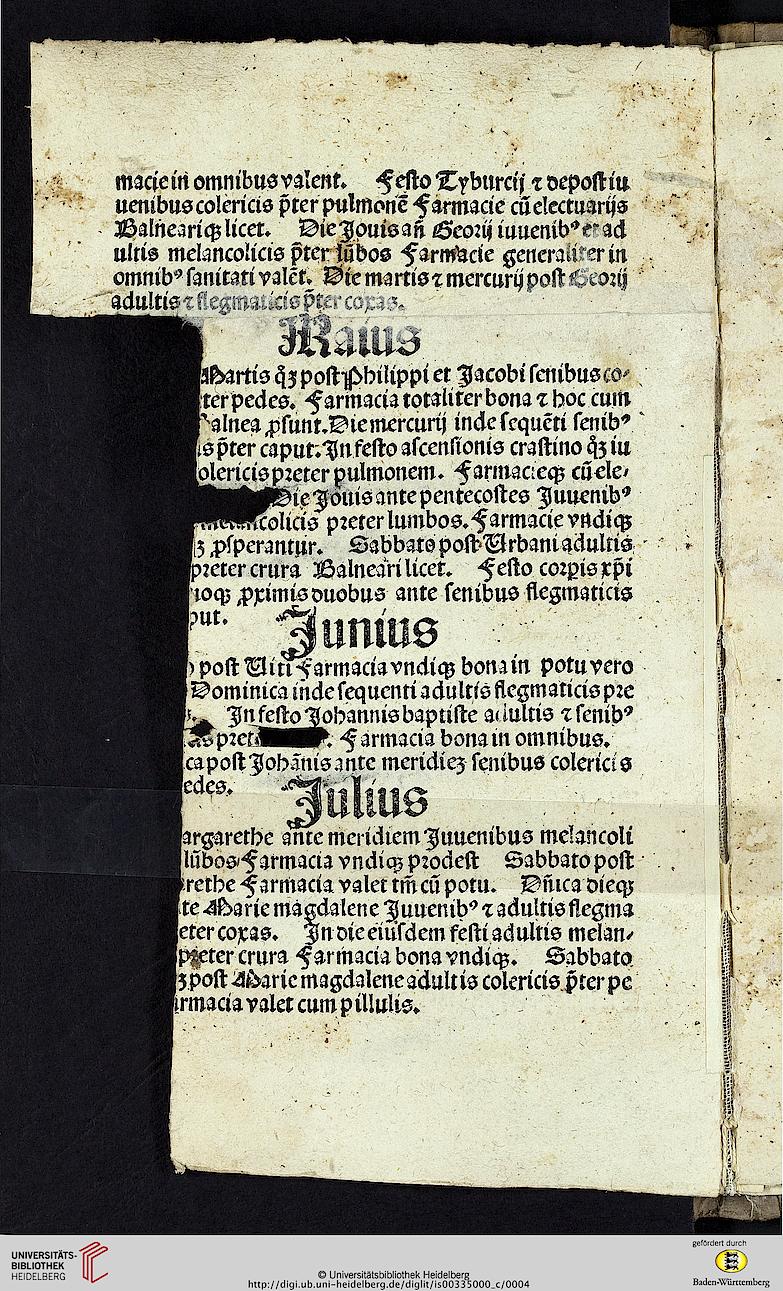 macie in omnibus valent. Festo Tyburcij ⁊ depost iu
uenibus colericis p̄ter pulmonē Farmacie cū electuarijs
Balneariqꝫ licet. Die Jouis añ Georij iuuenibꝰ et ad
ultis melancolicis p̄ter lūbos Farmacie generaliter in
omnibꝰ sanitati valēt. Die martis ⁊ mercurij post Georij
adultis ⁊ flegmaticis p̄ter coxas.
Maius
Martis qꝫ post Philippi et Jacobi senibus co-
ter pedes. Farmacia totaliter bona ⁊ hoc cum
alnea ꝓsunt. Die mercurij inde sequēti senibꝰ
is p̄ter caput. In festo ascensionis crastino qꝫ iu
olericis preter pulmonem. Farmacieqꝫ cū ele-
Die Jouis ante pentecostes Juuenibꝰ
melancolicis preter lumbos. Farmacie vndiqꝫ
ꝫ ꝓsperantur. Sabbato post Urbani adultis
preter crura Balneari licet. Festo corꝑis xp̄i
uoqꝫ ꝓximis duobus ante senibus flegmaticis
put.
Junius
o post Uiti Farmacia vndiqꝫ bona in potu vero
Dominica inde sequenti adultis flegmaticis pre
In festo Johannis baptiste adultis ⁊ senibꝰ
as pret . Farmacia bona in omnibus.
ca post Johānis ante meridieꝫ senibus colericis
edes.
Julius
argarethe ante meridiem Juuenibus melancoli
lūbos Farmacia vndiqꝫ prodest Sabbato post
rethe Farmacia valet tm̄ cū potu. Dñica dieqꝫ
te Marie magdalene Juuenibꝰ ⁊ adultis flegma
eter coxas. In die eiusdem festi adultis melan-
preter crura Farmacia bona vndiqꝫ. Sabbato
ꝫ post Marie magdalene adultis colericis p̄ter pe
armacia valet cum pillulis.
UNIVERSITÄTS-
BIBLIOTHEK
HEIDELBERG
© Universitätsbibliothek Heidelberg
http://digi.ub.uni-heidelberg.de/diglit/is00335000_c/0004
gefördert durch
Baden-Württemberg